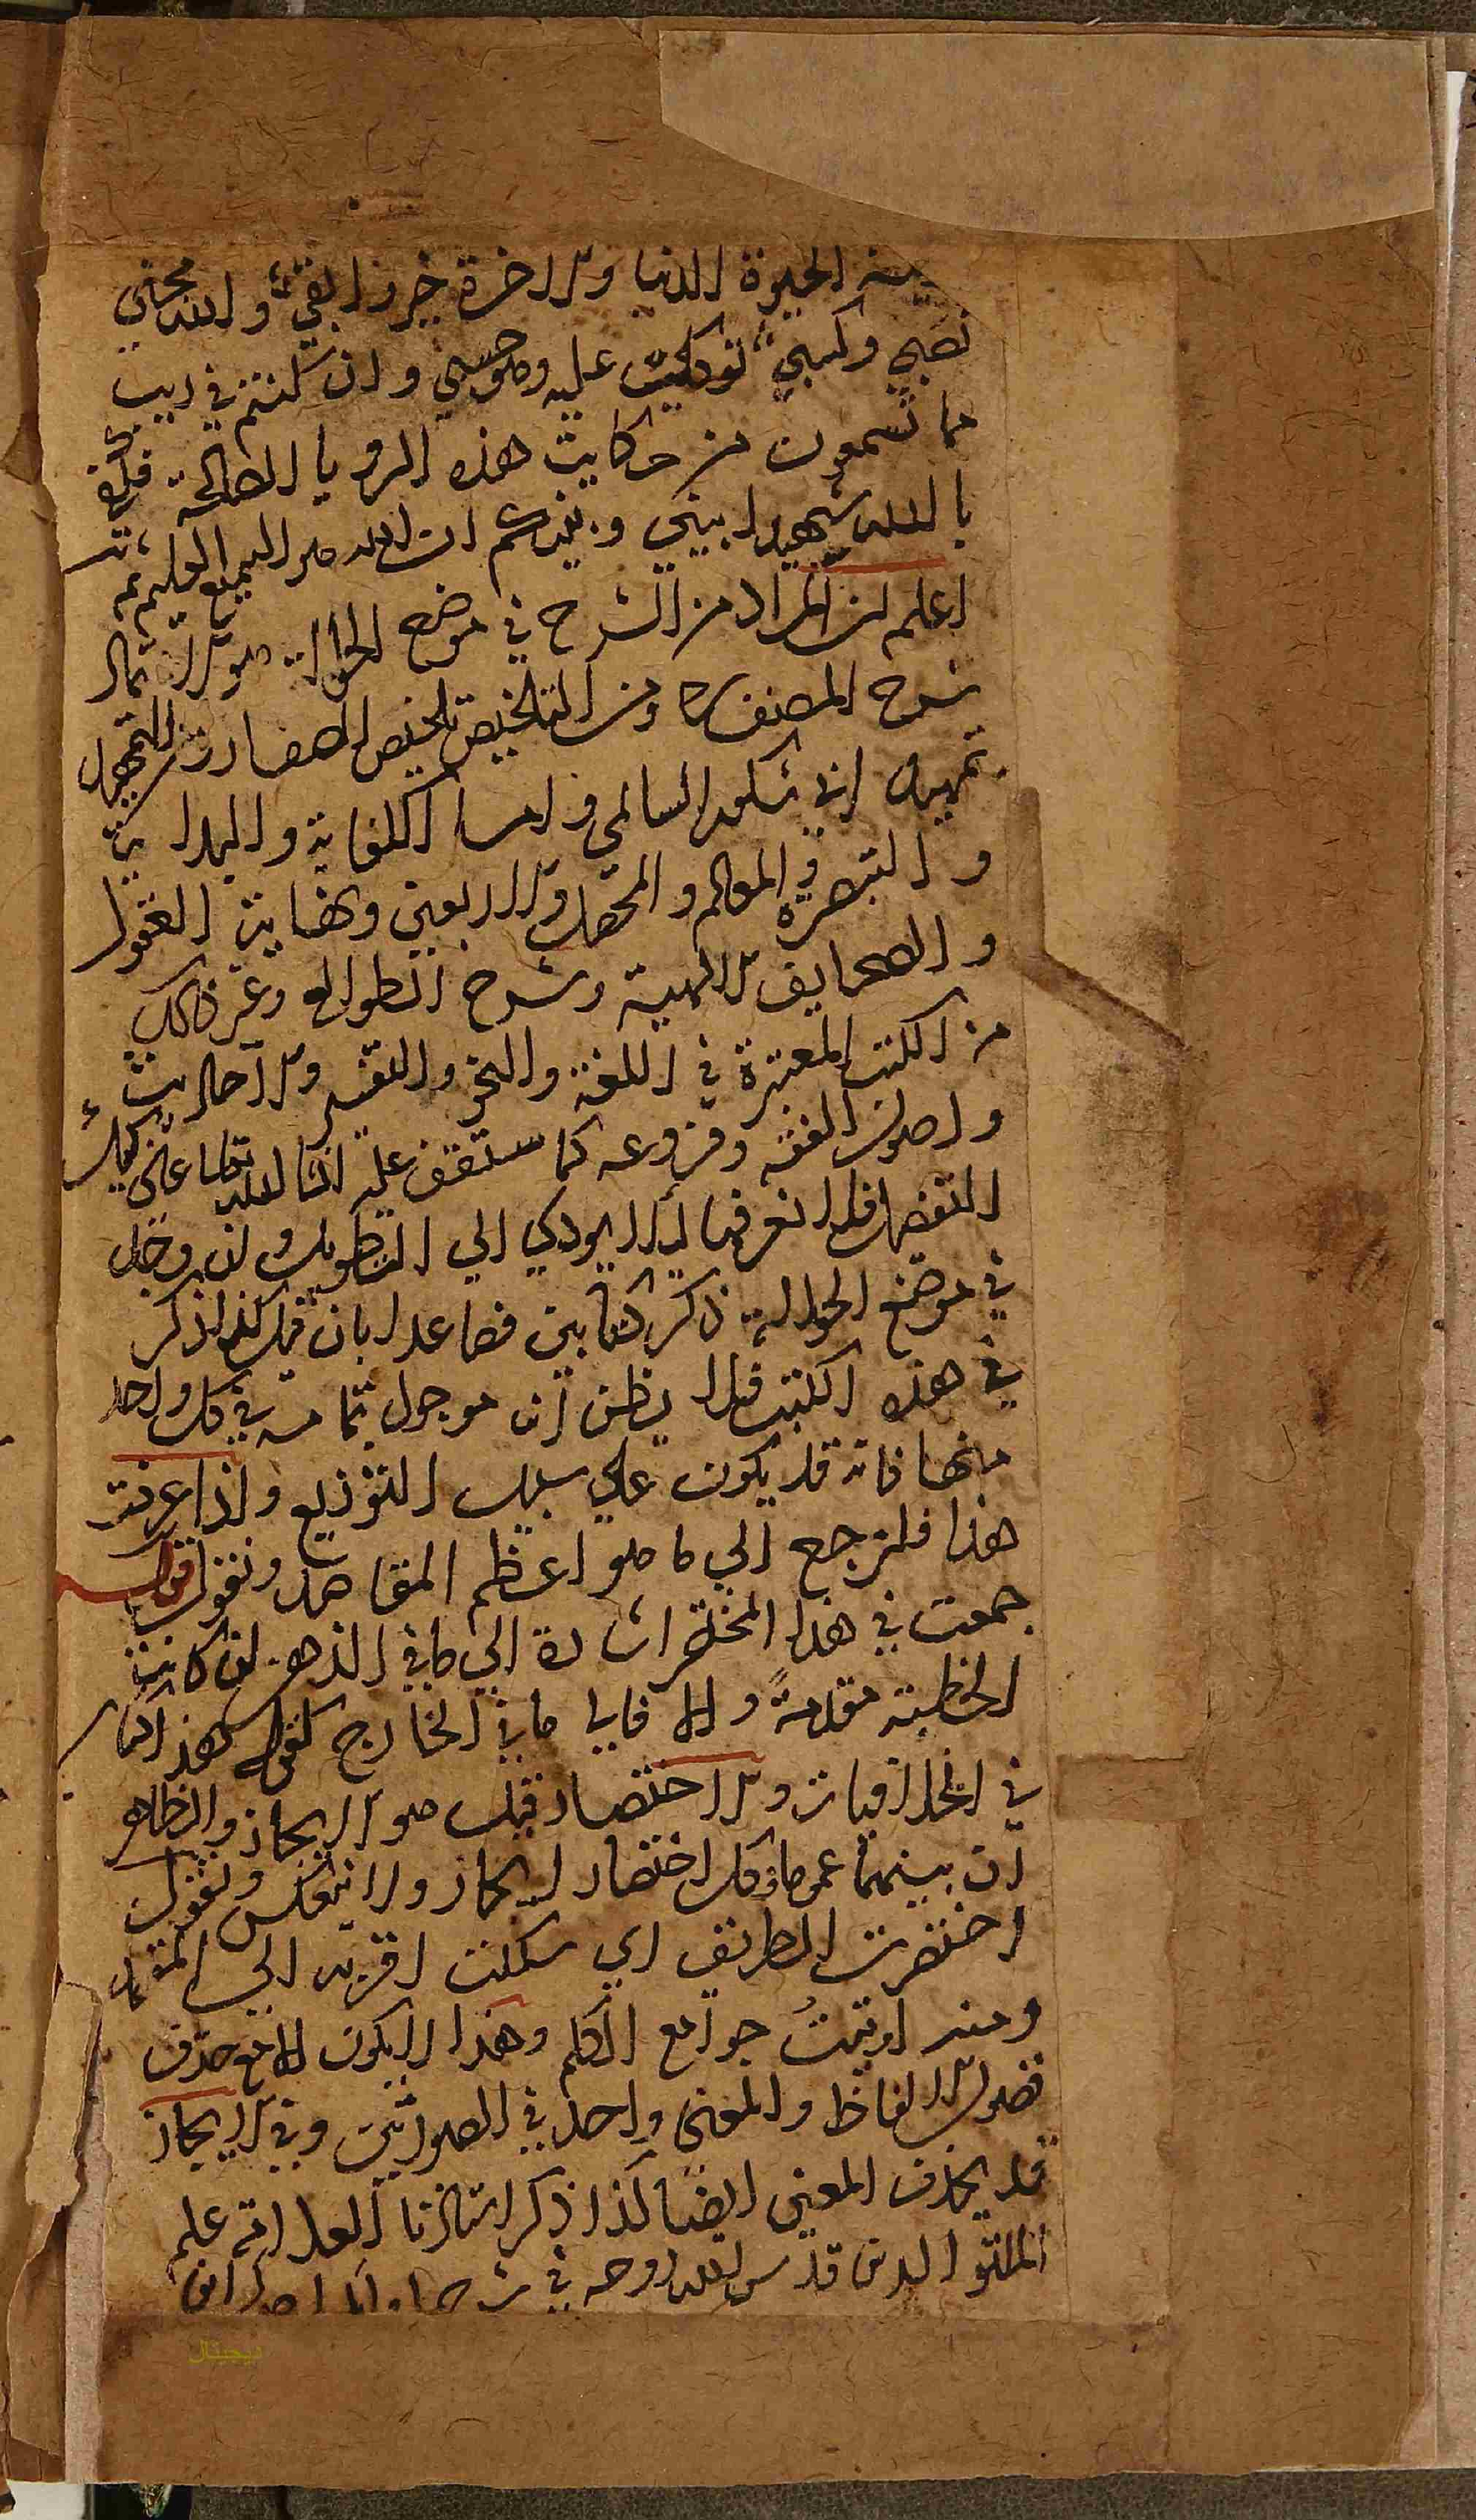 الحيوة الدنيا والاخرة خير وابقي والله محض
نصحي وكسبي توكلت عليه وهو حسبي وان كنتم في ريب
مما تسمعون من حكايت هذه الرويا الصالحة فكفي
بالله شهيدا بيني وبينكم ان الله هو السميع العليم ثم
اعلم ان المراد من الشرح في موضع الحوالة هو
شرح المصنف ومن التلخيص تلخيص ومن التمهيد
تمهيد ابي شكور السالمي و الكفاية والبداية
والتبصرة والمعالم والمحصل والاربعين ونهاية العقول
والصحايف الالهية وشرح الطوالع وغير ذالك
من الكتب المعتبرة في اللغة والنحو والتفسير والاحاديث
واصول الفقه وفروعه كما ستقف عليه انشا الله تعالى علي
التفصيل فلا نعرفها ليلا يودي الي التطويل وان وجد
في موضع الحوالة ذكر كتابين فصاعدا بان قيل كذا ذكر
في هذه الكتب فلا يظن ان موجود بتمامه في كل واحد
منها فانه قد يكون علي سبيل التوزيع واذا عرفت
هذا فلنرجع الي ما هو اعظم المقاصد ونقول قوله
جمعت في هذا المختصر اشارة الي ما في الذهن ان كانت
الخطبة مقدمة والا فالي ما في الخارج كقوله هذا كتاب
في الخلافيات والاختصار قيل هو الايجاز والظاهر
ان بينهما عموما وكل اختصار ايجاز ولا ينعكس ونقول
اختصرت الطريق اي سكلت اقربه الي المقصد
ومنه اوتيت جوامع الكلم وهذا لايكون الا مع حذف
فضول الالفاظ والمعنى واحد في الصورتين وفي الايجاز
قد يحذف المعني ايضا كذا ذكر استاذنا العلامة علم
الدين قدس الله روحه في
ديجيتال